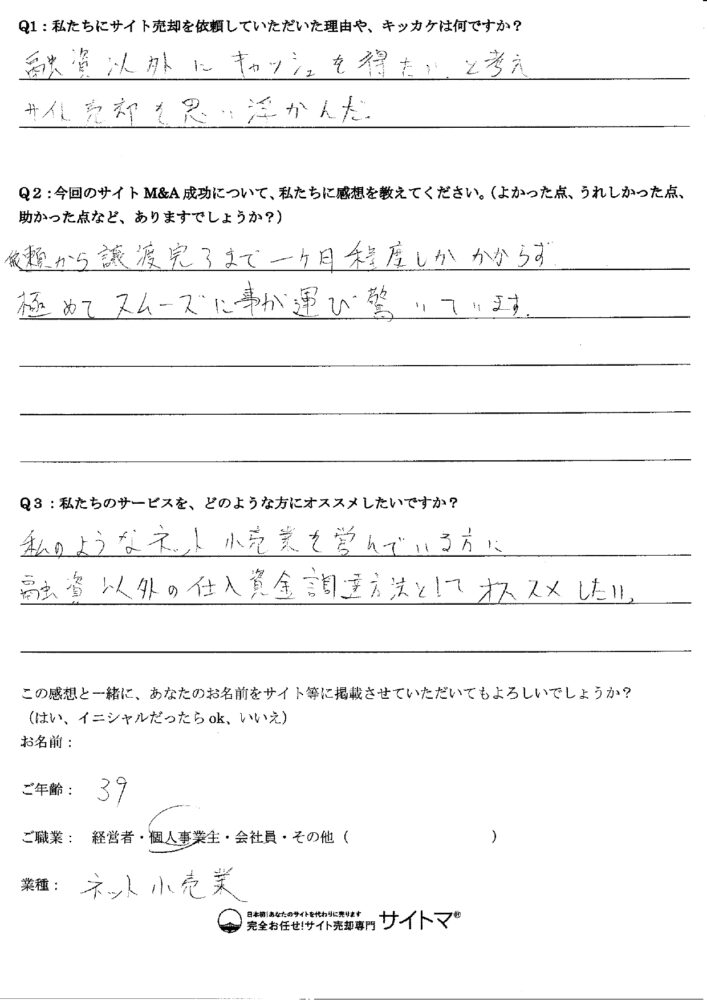 Q1：私たちにサイト売却を依頼していただいた理由や、キッカケは何ですか？
融資以外にキャッシュを得たい、と考え
サイト売却を思い浮かんだ。
Q2：今回のサイト M&A 成功について、私たちに感想を教えてください。（よかった点、うれしかった点、
助かった点など、ありますでしょうか？）
依頼から譲渡完了まで一ヶ月程度しかかからず
極めてスムーズに事が運び驚いています。
Q3：私たちのサービスを、どのような方にオススメしたいですか？
私のようなネット小売業を営んでいる方に
融資以外の仕入資金調達方法としてオススメしたい。
この感想と一緒に、あなたのお名前をサイト等に掲載させていただいてもよろしいでしょうか？
（はい、イニシャルだったら ok、いいえ）
お名前：
ご年齢： 39
ご職業： 経営者・個人事業主・会社員・その他（ ）
業種： ネット小売業
日本初！あなたのサイトを代わりに売ります
完全お任せ！サイト売却専門 サイトマ®